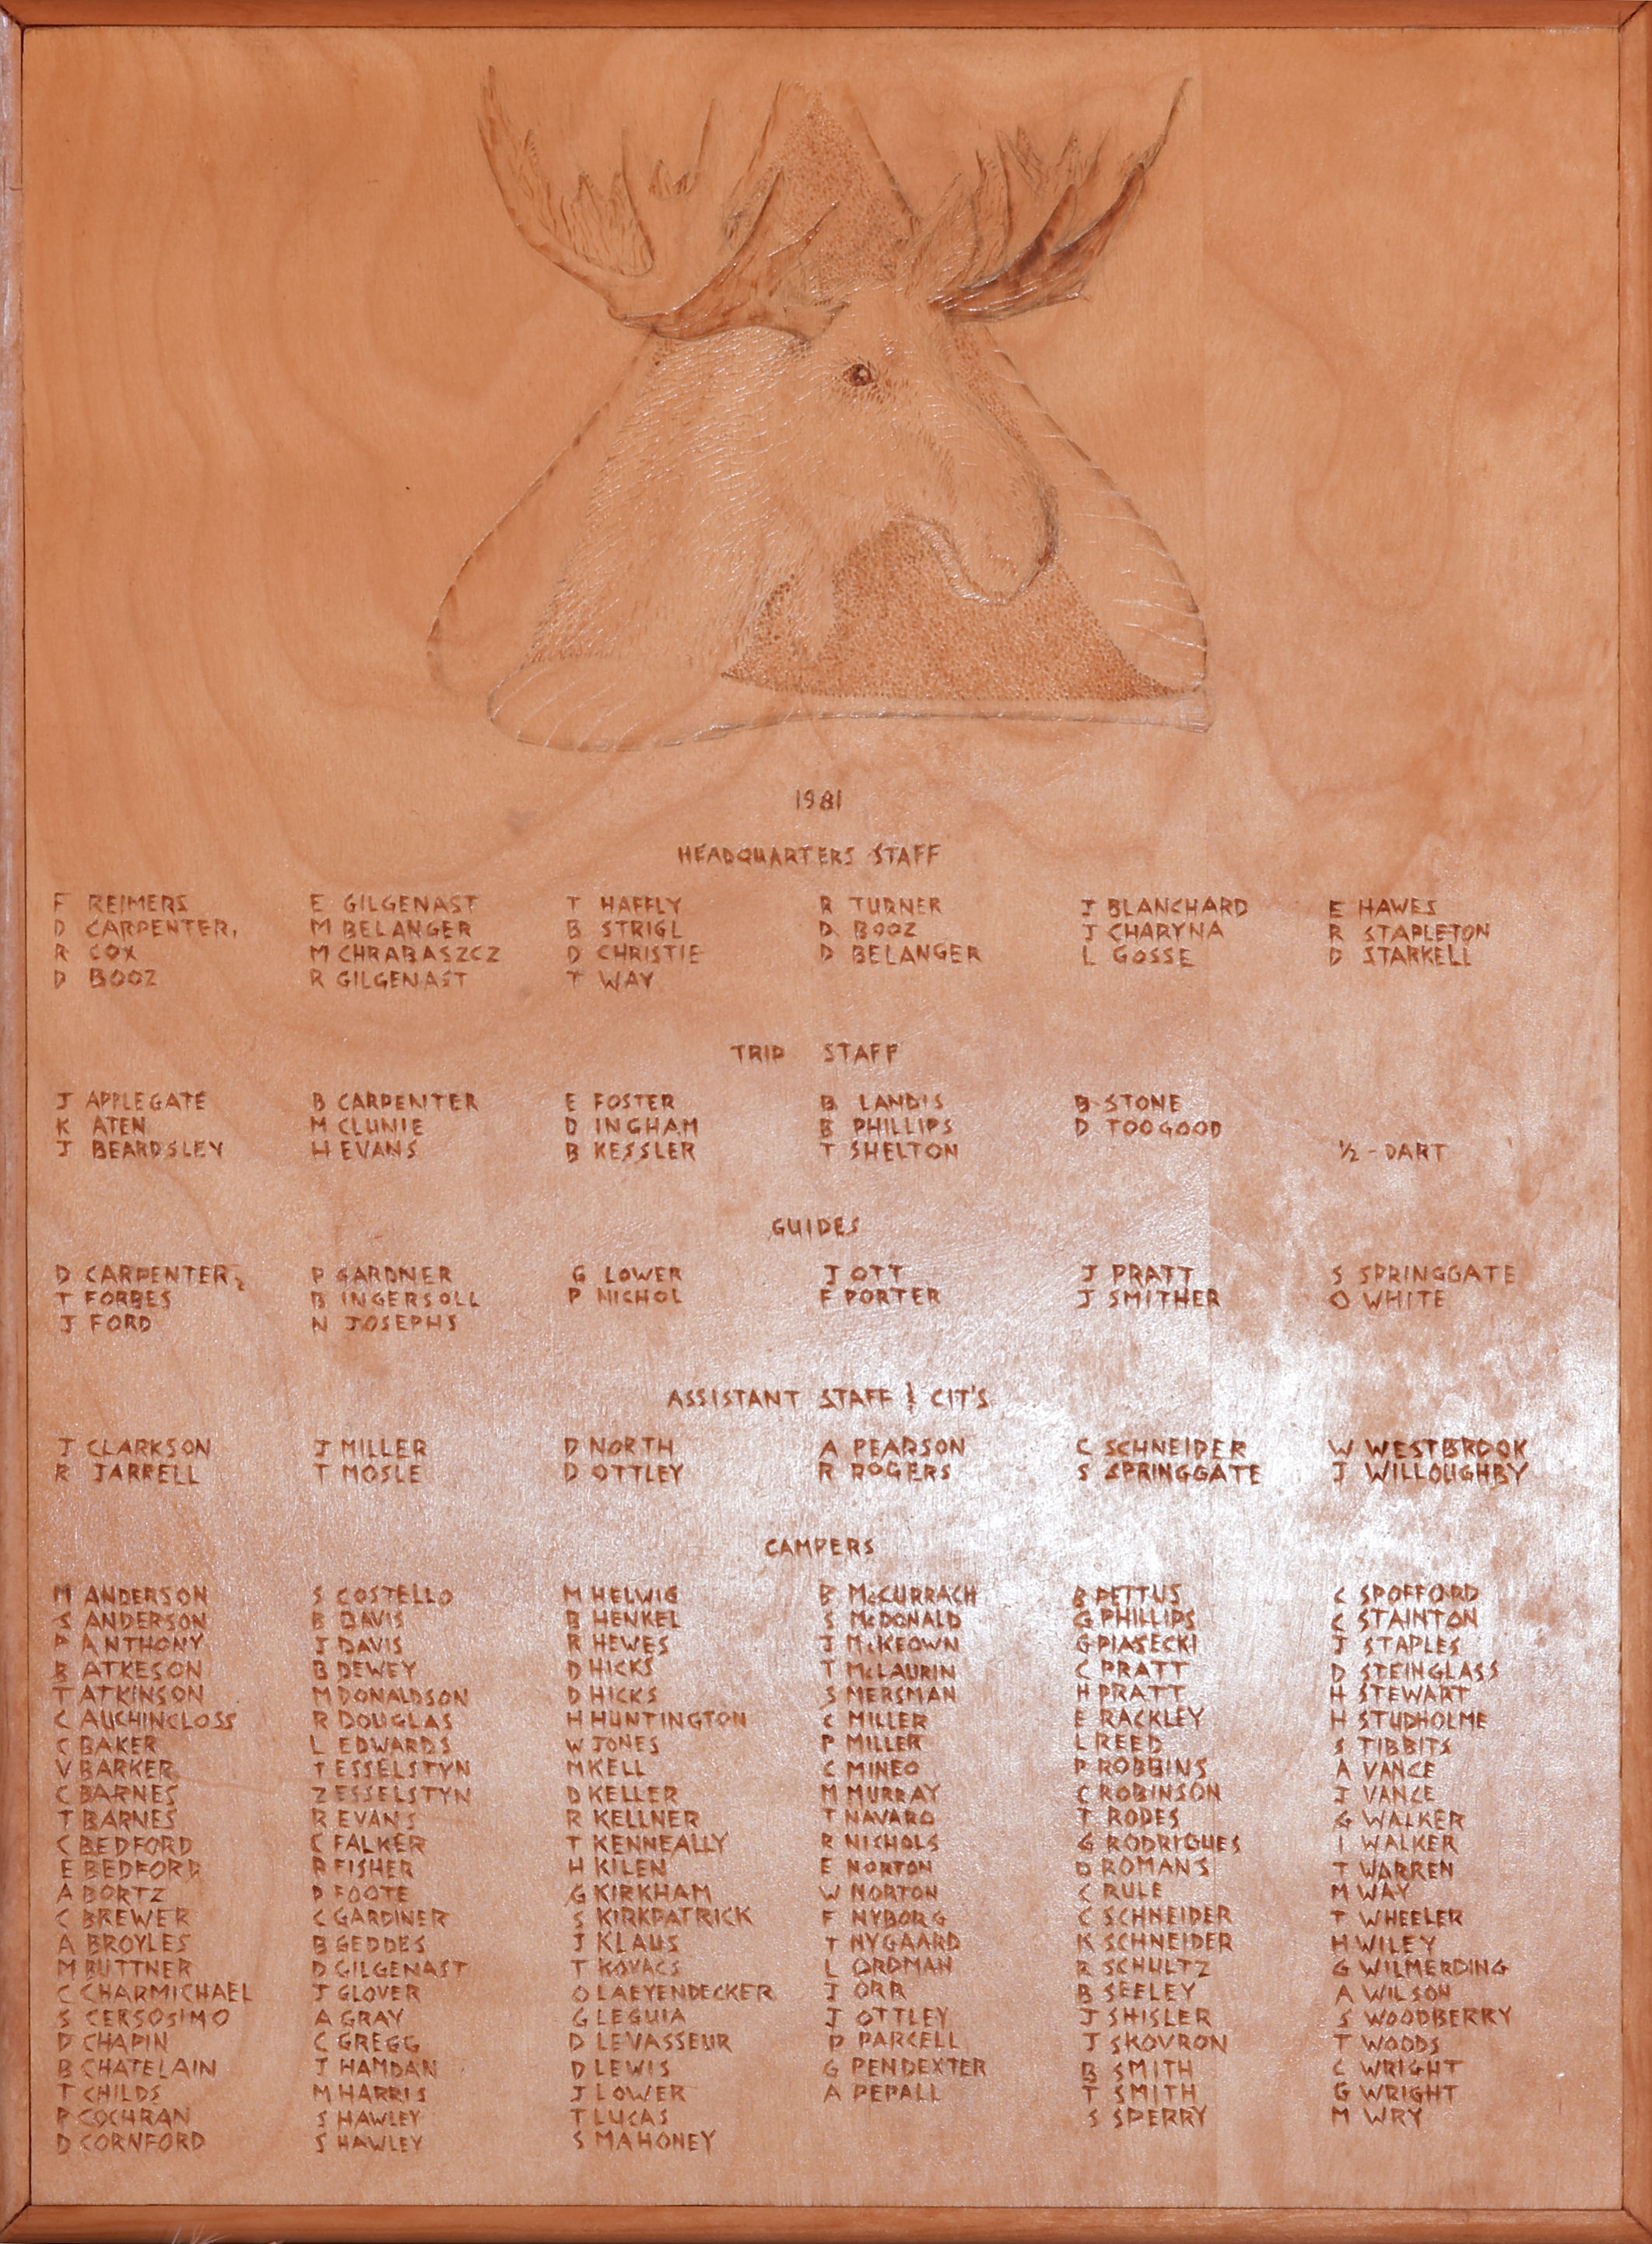 1981
HEADQUARTERS STAFF
F REIMERS E GILGENAST T HAFFLY R TURNER J BLANCHARD E HAWES
D CARPENTER, M BELANGER B STRIGL D. BOOZ J CHARYNA R STAPLETON
R COX M CHRABASZCZ D CHRISTIE D BELANGER L GOSSE D STARKELL
D BOOZ R GILGENAST T WAY
TRIP STAFF
J APPLEGATE B CARPENTER E FOSTER B LANDIS B STONE
K ATEN M CLUNIE D INGHAM B PHILLIPS D TOOGOOD
J BEARDSLEY H EVANS B KESSLER T SHELTON ½ - DART
GUIDES
D CARPENTER2 P GARDNER G LOWER J OTT J PRATT S SPRINGGATE
T FORBES B INGERSOLL P NICHOL F PORTER J SMITHER O WHITE
J FORD N JOSEPHS
ASSISTANT STAFF & CIT'S
J CLARKSON J MILLER D NORTH A PEARSON C SCHNEIDER W WESTBROOK
R JARRELL T MOSLE D OTTLEY R ROGERS S SPRINGGATE J WILLOUGHBY
CAMPERS
M ANDERSON S COSTELLO M HELWIG B McCURRACH B PETTUS C SPOFFORD
S ANDERSON B DAVIS B HENKEL S McDONALD G PHILLIPS C STAINTON
P ANTHONY J DAVIS R HEWES J McKEOWN G PIASECKI J STAPLES
B ATKESON B DEWEY D HICKS T McLAURIN C PRATT D STEINGLASS
T ATKINSON M DONALDSON D HICKS S MERSMAN H PRATT H STEWART
C AUCHINCLOSS R DOUGLAS H HUNTINGTON C MILLER E RACKLEY H STUDHOLME
C BAKER L EDWARDS W JONES P MILLER L REED S TIBBITS
V BARKER T ESSELSTYN M KELL C MINEO P ROBBINS A VANCE
C BARNES Z ESSELSTYN D KELLER M MURRAY C ROBINSON J VANCE
T BARNES R EVANS R KELLNER T NAVARO T RODES G WALKER
C BEDFORD C FALKER T KENNEALLY R NICHOLS G RODRIGUES I WALKER
E BEDFORD R FISHER H KILEN E NORTON D ROMANS T WARREN
A BORTZ D FOOTE G KIRKHAM W NORTON C RULE M WAY
C BREWER C GARDINER S KIRKPATRICK F NYBORG C SCHNEIDER T WHEELER
A BROYLES B GEDDES J KLAUS T NYGAARD K SCHNEIDER H WILEY
M BUTTNER D GILGENAST T KOVACS L ORDMAN R SCHULTZ G WILMERDING
C CHARMICHAEL J GLOVER O LAEYENDECKER J ORR B SEELEY A WILSON
S CERSOSIMO A GRAY G LEGUIA J OTTLEY J SHISLER S WOODBERRY
D CHAPIN C GREGG D LEVASSEUR D PARCELL J SKOVRON T WOODS
B CHATELAIN J HAMDAN D LEWIS G PENDEXTER B SMITH C WRIGHT
T CHILDS M HARRIS J LOWER A PEPALL T SMITH G WRIGHT
P COCHRAN S HAWLEY T LUCAS S SPERRY M WRY
D CORNFORD S HAWLEY S MAHONEY